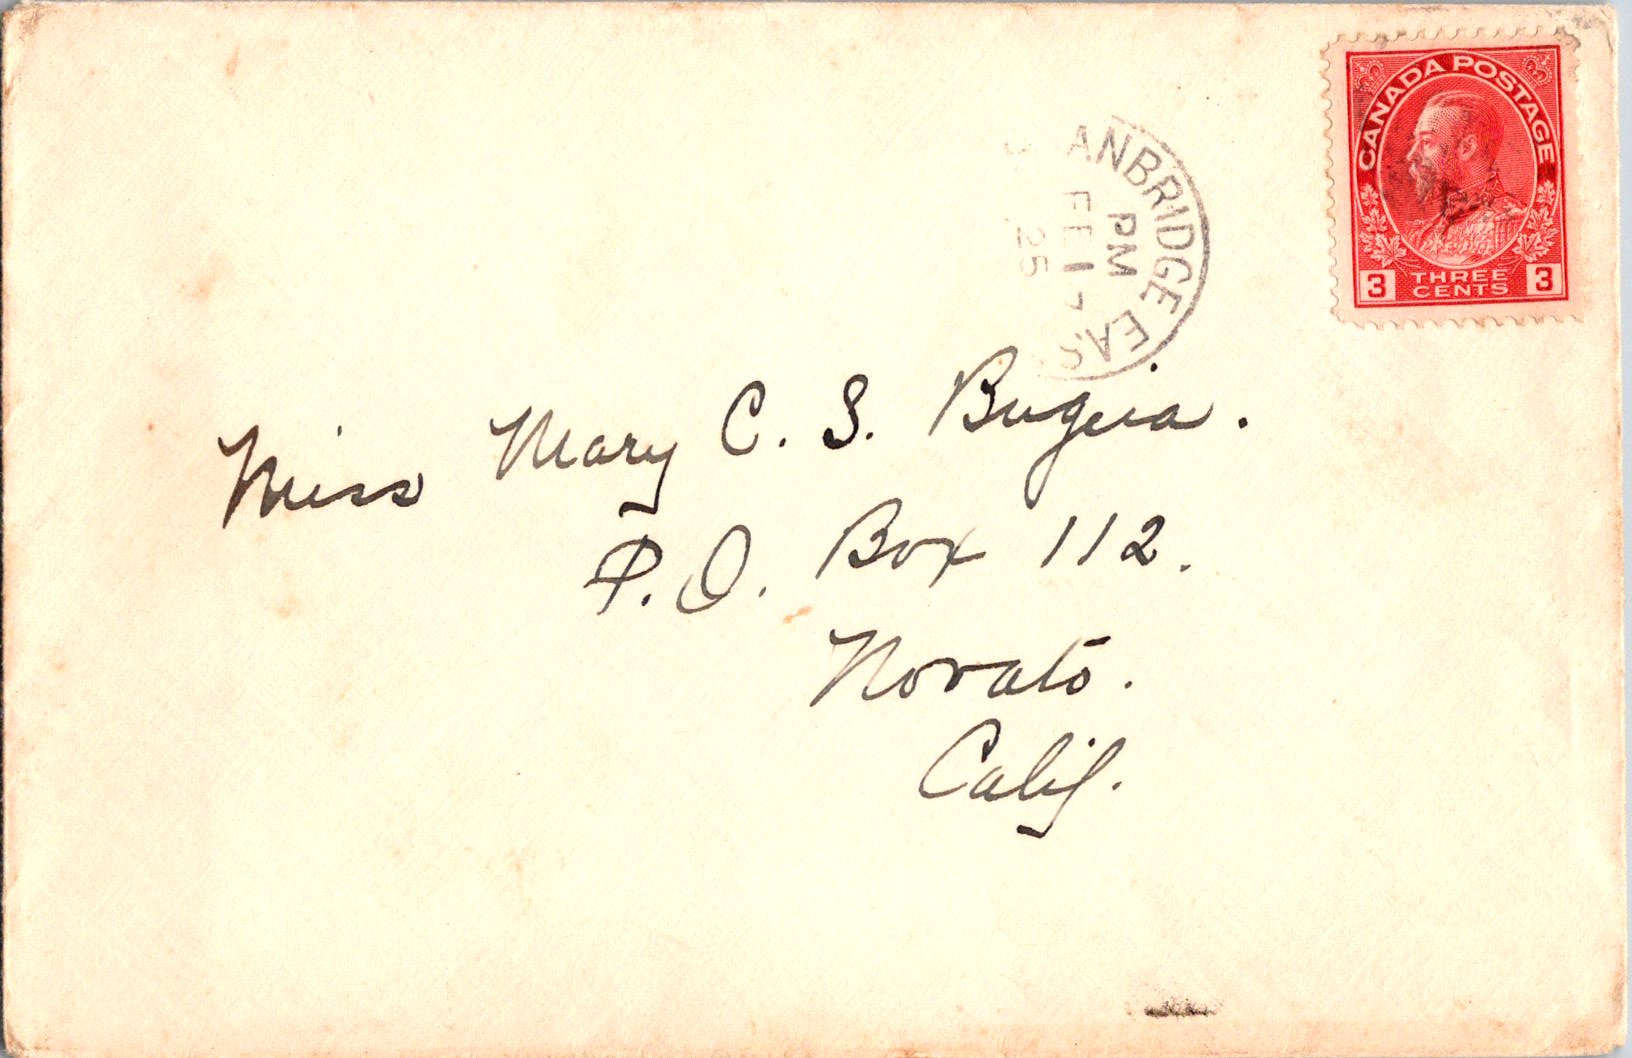 CANADA POSTAGE
3 THREE CENTS 3
ANBRIDGE EAS
PM
FE 1
25
Miss Mary C. S. Bugeia.
P. O. Box 112.
Novato.
Calif.